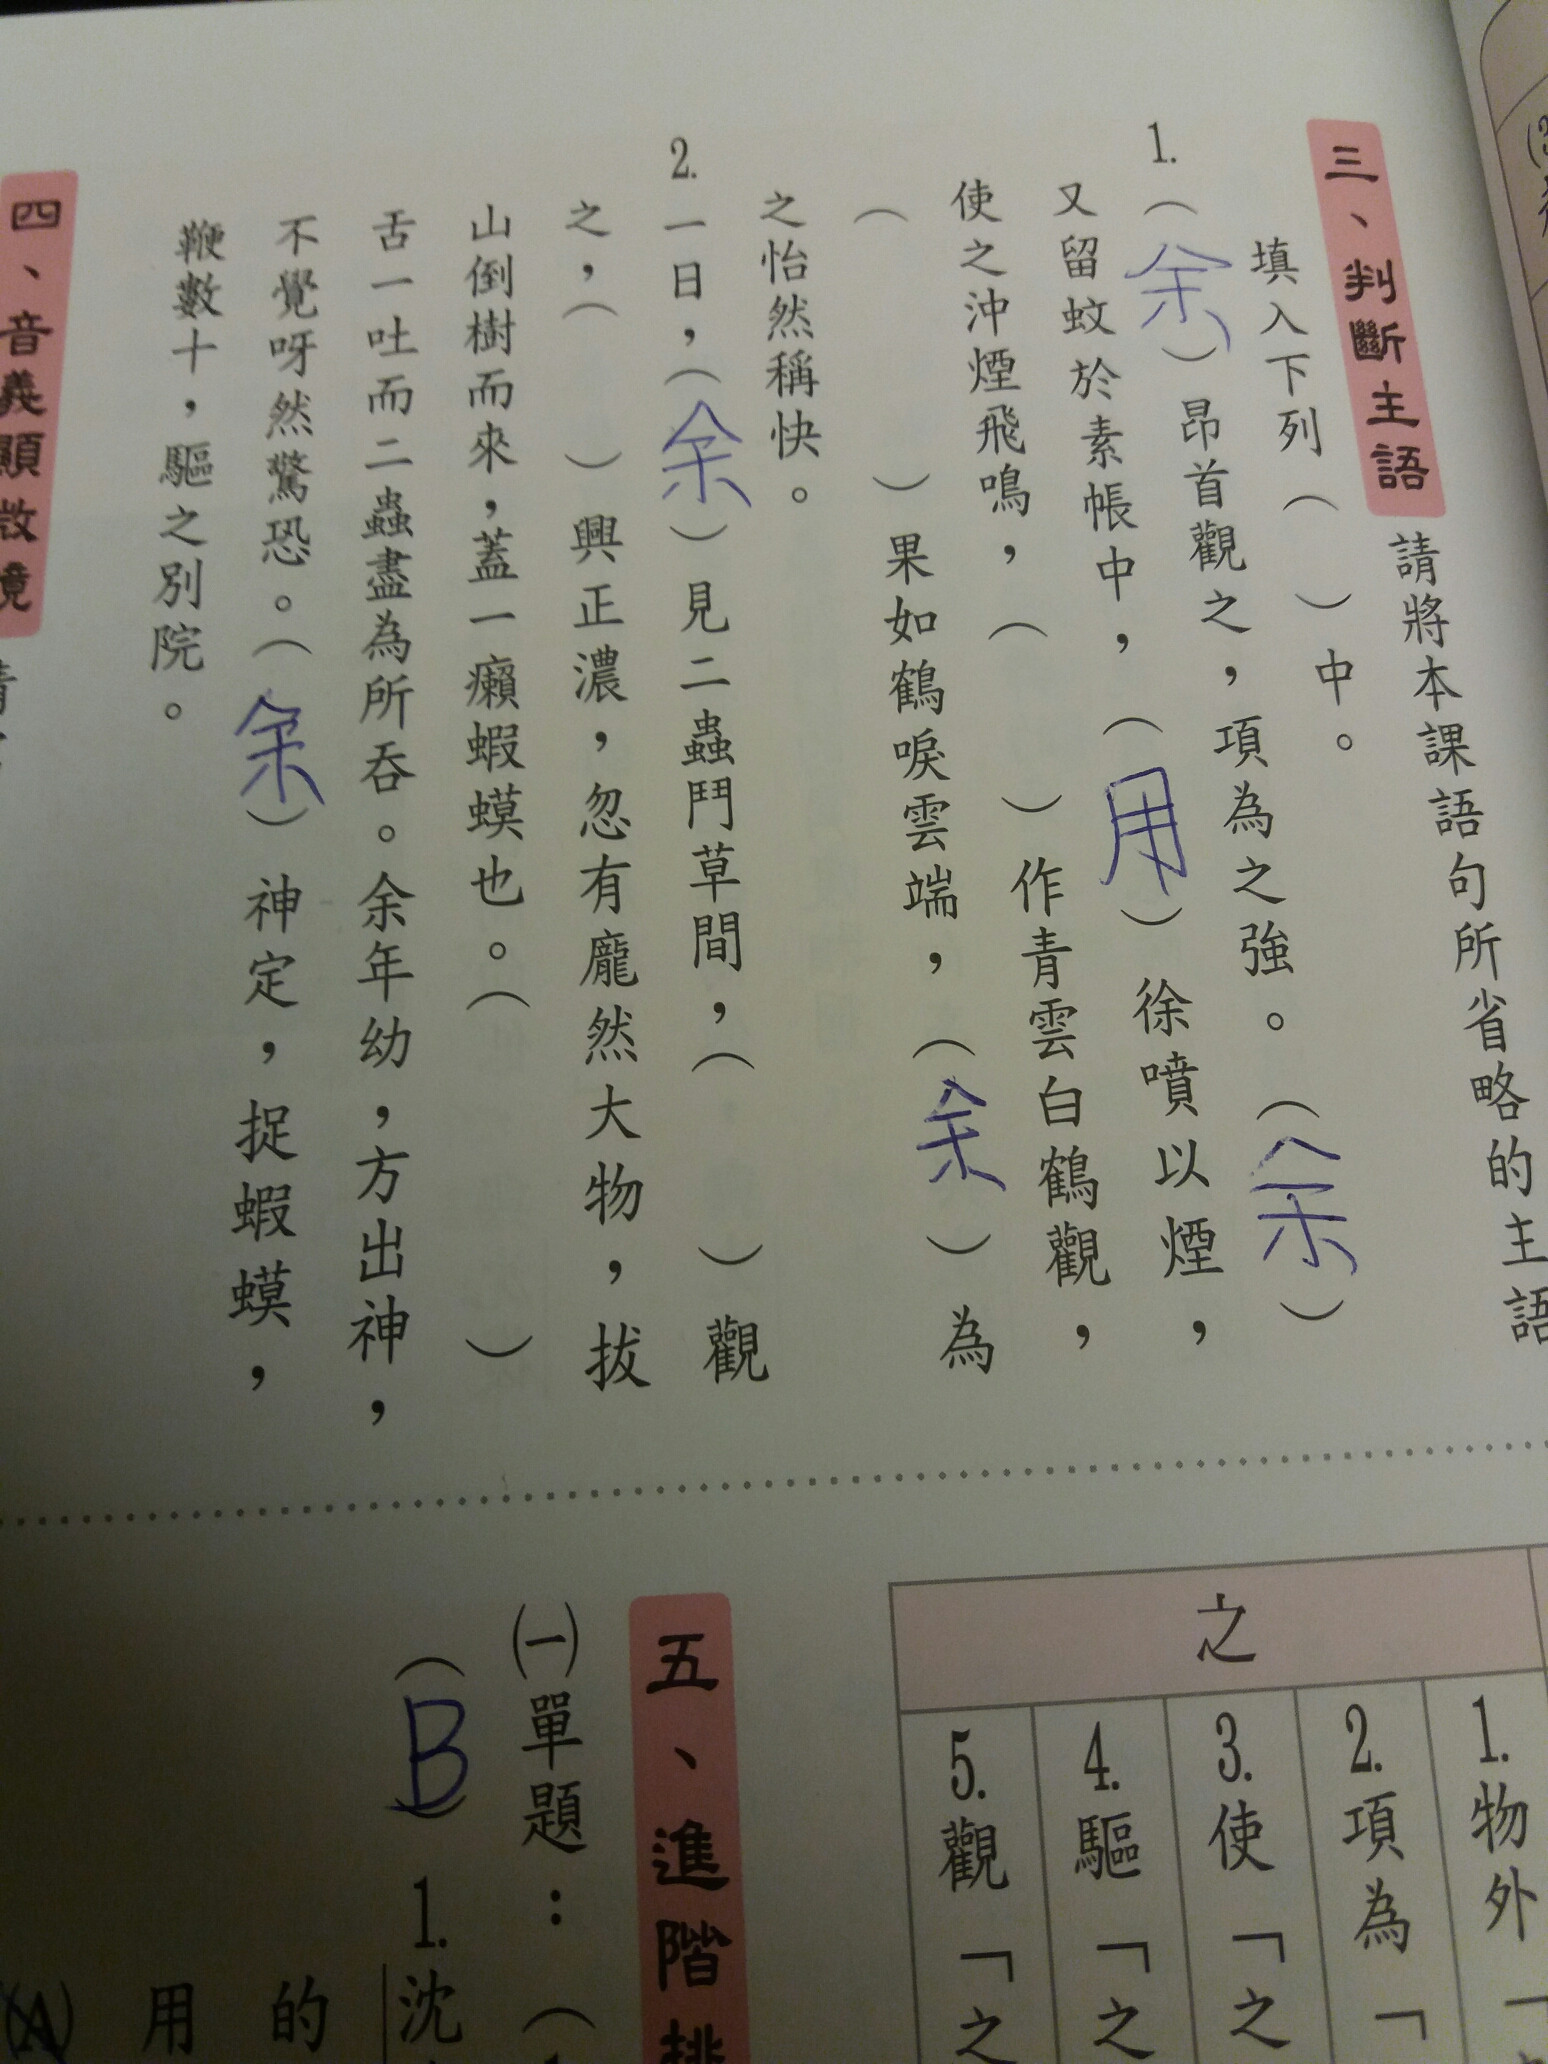 三、判斷主語 請將本課語句所省略的主語
填入下列（ ）中。
1.（余）昂首觀之，項為之強。（余）
又留蚊於素帳中，（用）徐噴以煙，
使之沖煙飛鳴，（ ）作青雲白鶴觀，
（ ）果如鶴唳雲端，（余）為
之怡然稱快。
2.一日，（余）見二蟲鬥草間，（ ）觀
之，（ ）興正濃，忽有龐然大物，拔
山倒樹而來，蓋一癩蝦蟆也。（ ）
舌一吐而二蟲盡為所吞。余年幼，方出神，
不覺呀然驚恐。（余）神定，捉蝦蟆，
鞭數十，驅之別院。
四、音義顯微鏡
之
1.物外「
2.項為「
3.使「之
4.驅「之
5.觀「之
五、進階挑
㈠單題：（
（B）1.沈
的
用
(A)